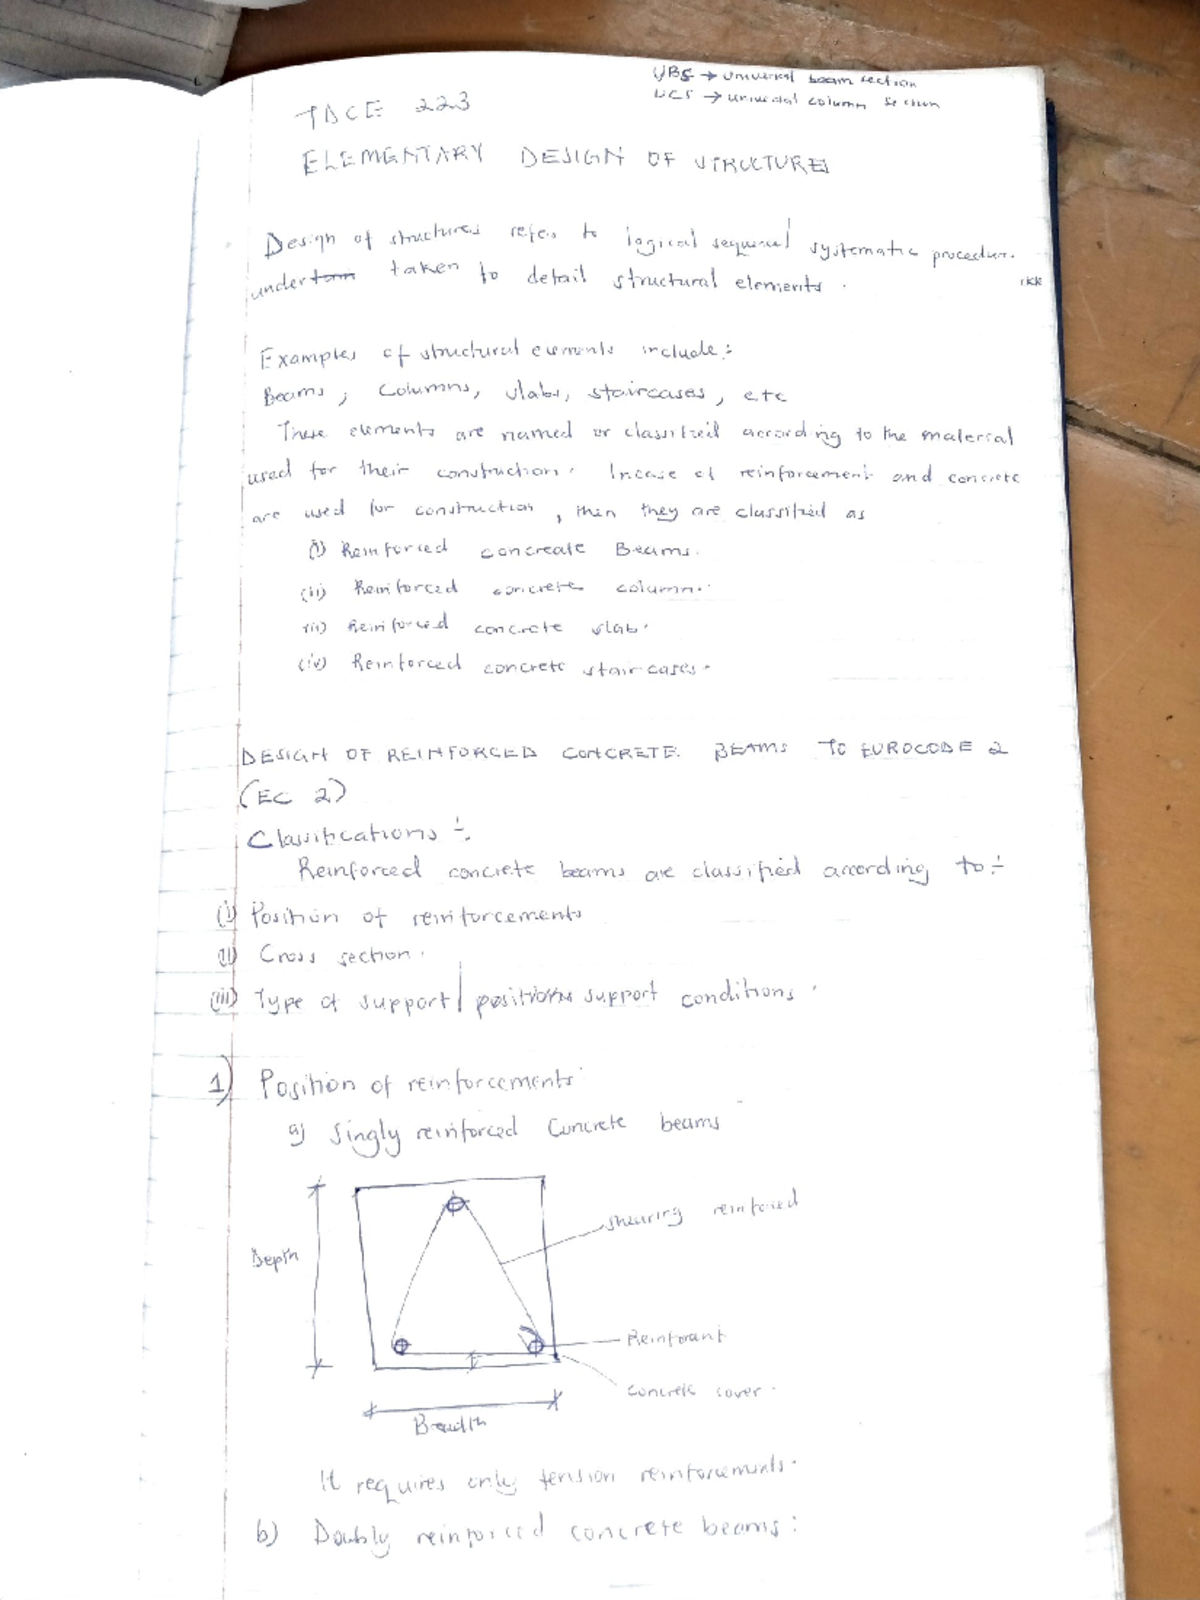 UBS → universal beam section
UCS → universal column section
TDCE 223
ELEMENTARY DESIGN OF STRUCTURES
Design of structures refers to logical sequencel systematic procedure.
under taken to detail structural elements.
Examples of structural elements include:
Beams, Columns, slabs, staircases, etc
These elements are named or classified according to the material
used for their construction. Incase of reinforcement and concrete
are used for construction, then they are classified as
(i) Reinforced concreate Beams.
(ii) Reinforced concrete column.
iii) Reinforced concrete slab.
(iv) Reinforced concrete stair cases.
DESIGN OF REINFORCED CONCRETE BEAMS TO EUROCODE 2
(EC 2)
Classifications:-
Reinforced concrete beams are classified according to:-
(i) Position of reinforcements
ii) Cross section.
(iii) Type of support/ positions support conditions.
1) Position of reinforcements
a) Singly reinforced Concrete beams
Depth
shearing reinforced
Reinforant
concrete cover.
Breadth
It requires only tension reinforcements.
b) Doubly reinforced concrete beams: